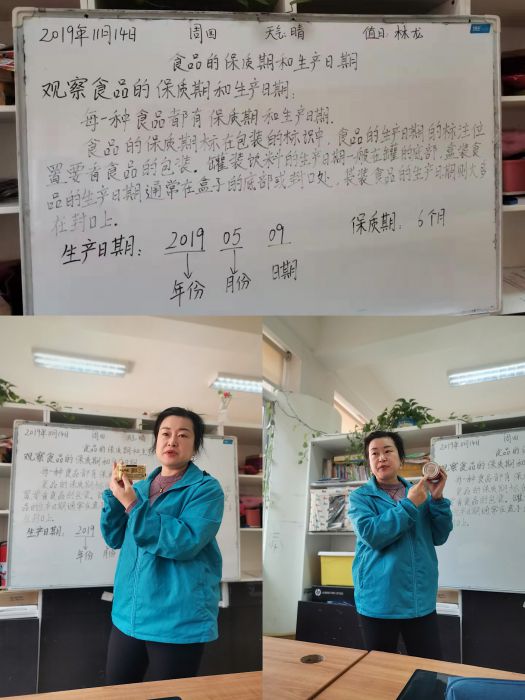 2019年11月14日 周四 天气:晴 值日:林龙
食品的保质期和生产日期
观察食品的保质期和生产日期:
每一种食品都有保质期和生产日期.
食品的保质期标在包装的标识中,食品的生产日期的标注位
置要看食品的包装。罐装饮料的生产日期一般在罐的底部,盒装食
品的生产日期通常在盒子的底部或封口处,袋装食品的生产日期则大多
在封口上.
生产日期: 2019 05 09 保质期: 6个月
年份 月份 日期
2019年11月14日 周四 天气:晴
食品的保质期和生
观察食品的保质期和
每一种食品都有保
食品的保质期标
置要看食品的包装。
品的生产日期通常在盒
在封口上.
生产日期: 2019
年份 月份
2019年11月14日 周四
食品的保质